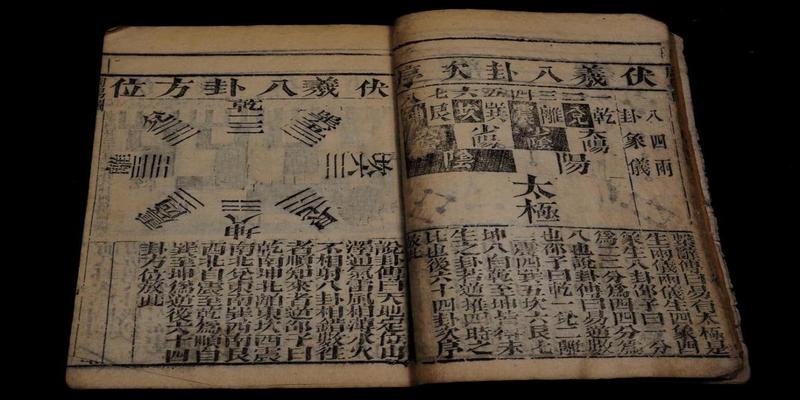 伏羲八卦次序
八卦
四象
兩儀
一二三四五六七八
乾兌離震巽坎艮坤
太陽 少陰 少陽
陽 陰
太極
繫辭傳曰易有太極是
生兩儀兩儀生四象四
象生八卦邵子曰一分
為二二分為四四分為
八也說卦傳曰易逆數
也邵子曰乾一兌二離
三震四巽五坎六艮七
坤八自乾至坤皆得未
生之卦若逆推四時之
比也後六十四卦次序
放此
伏羲八卦方位
乾
兌
巽
離
坎
震
艮
坤
說卦傳曰天地定位山
澤通氣雷風相薄水火
不相射八卦相錯數往
者順知來者逆邵子曰
乾南坤北離東坎西震
東北兌東南巽西南艮
西北自震至乾為順自
巽至坤為逆後六十四
卦方位放此